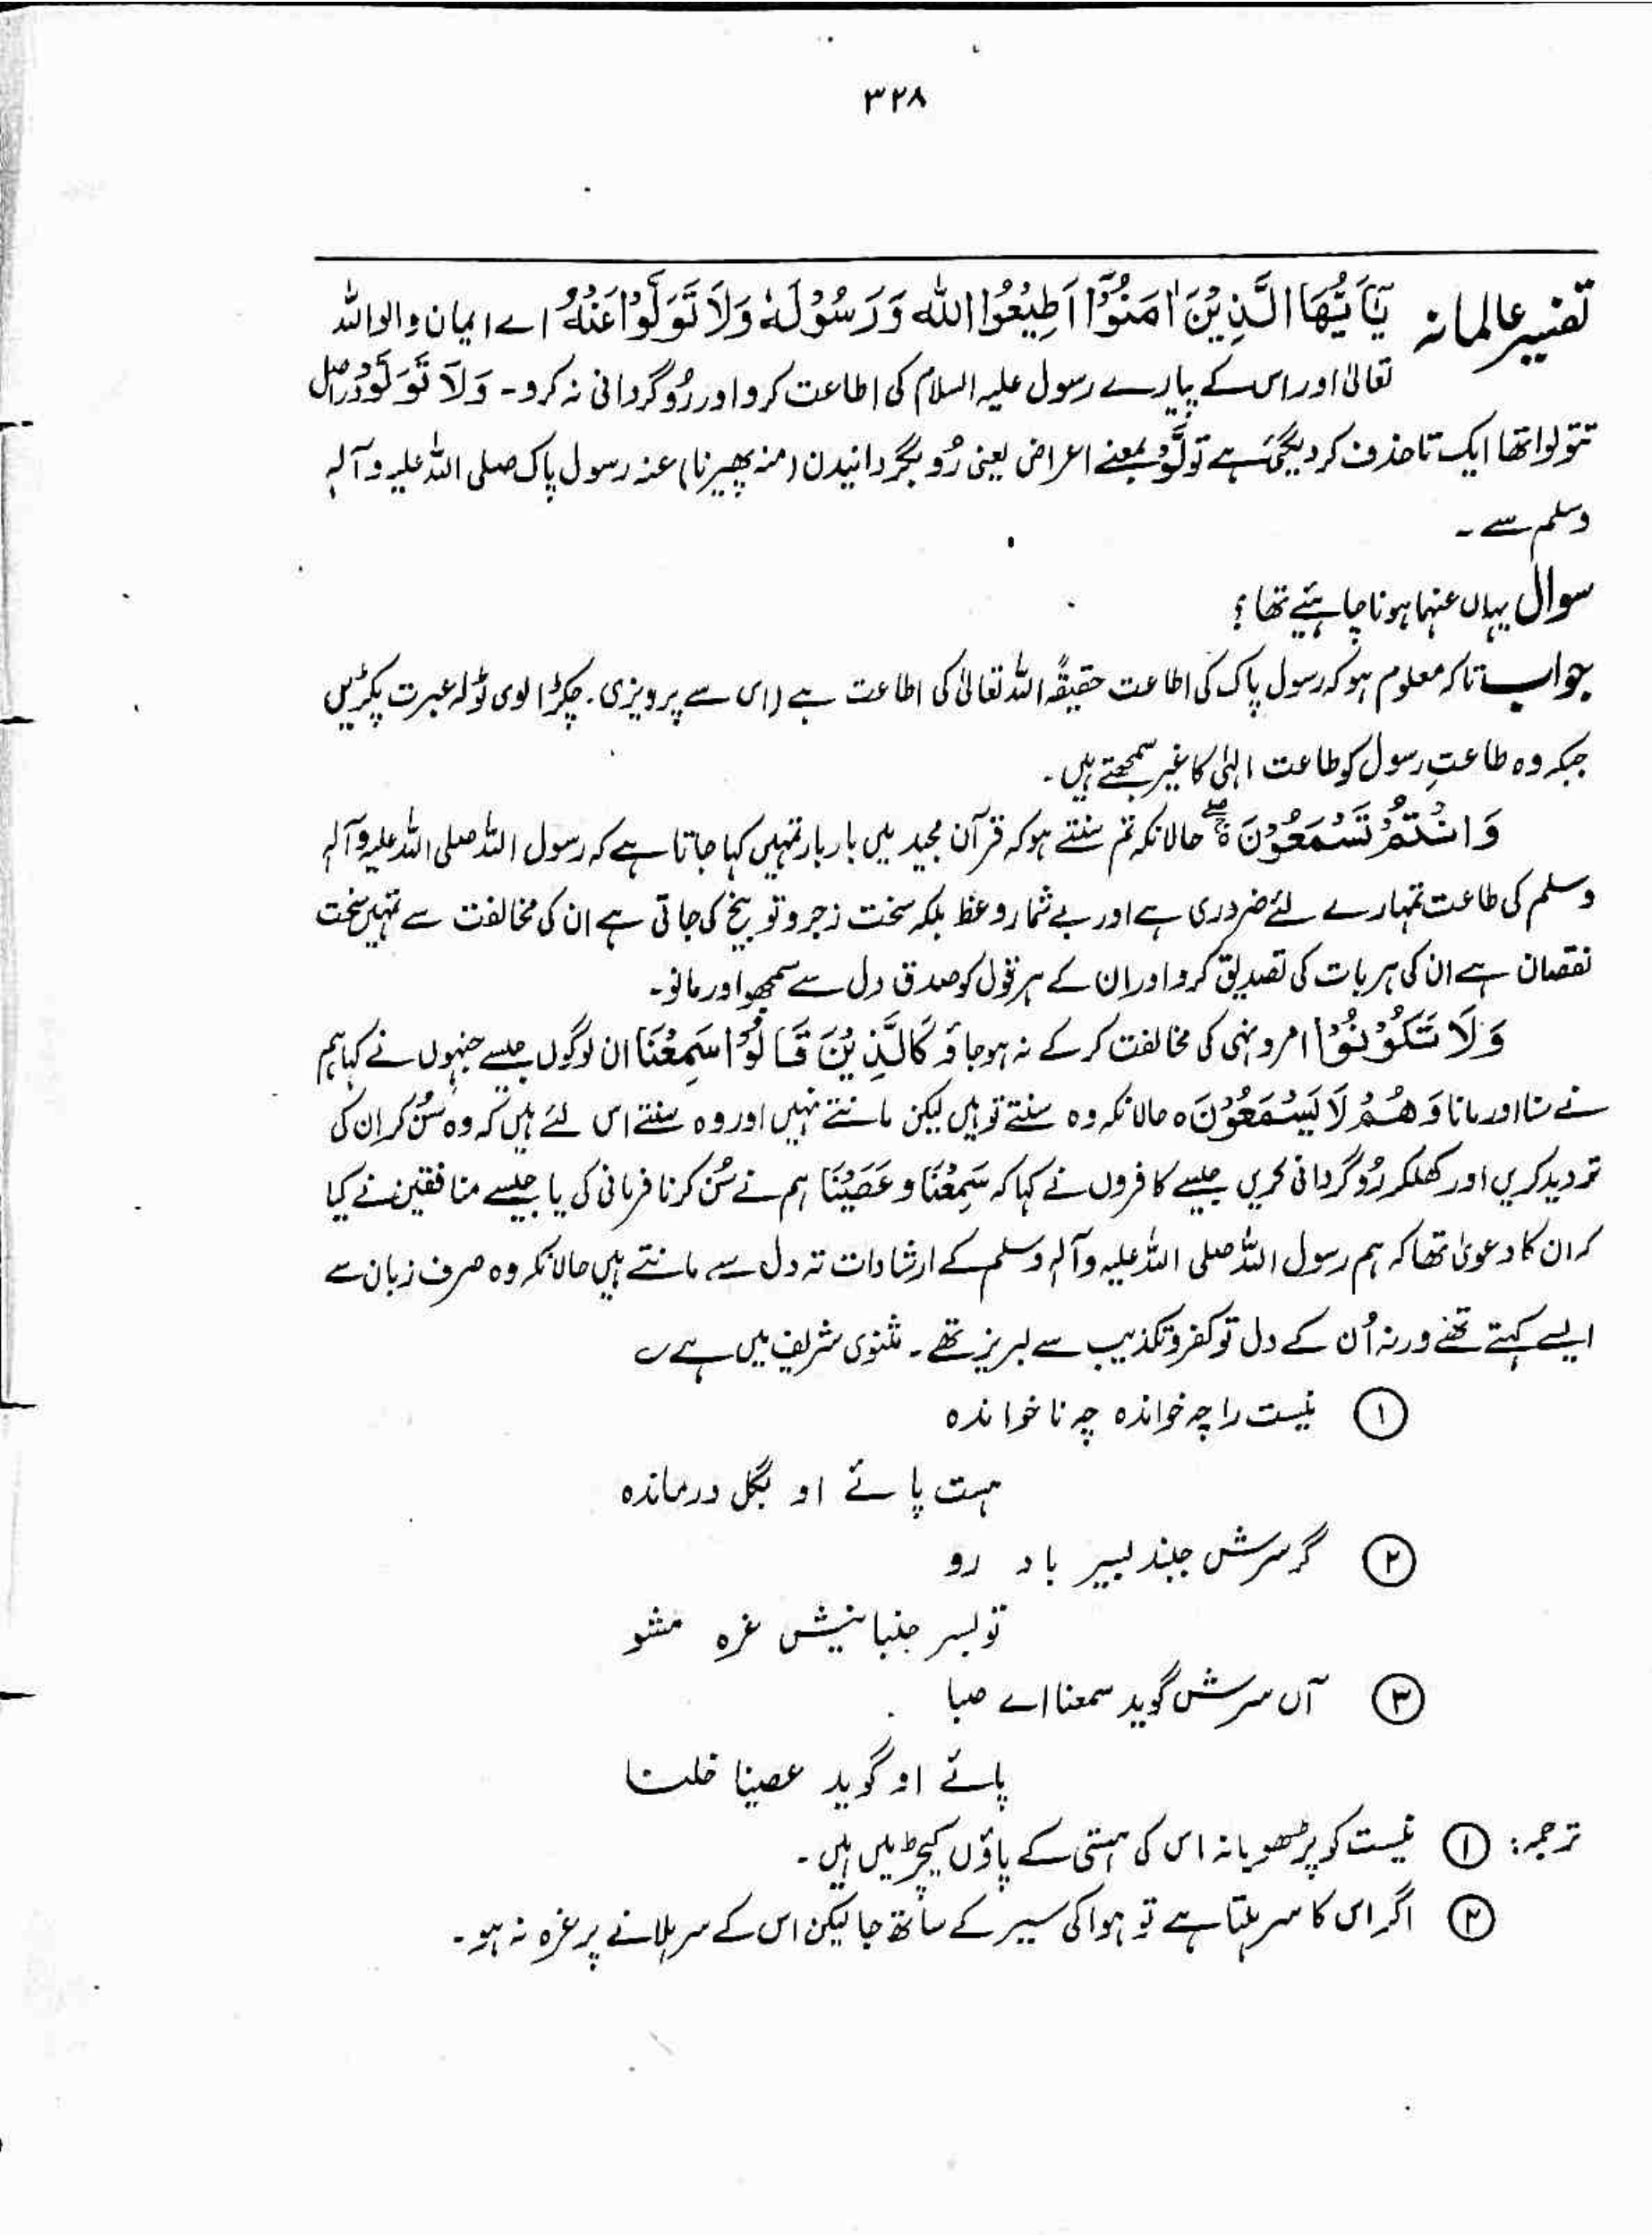 ۳۲۸
تفسیر عالمانہ یٰۤاَیُّهَا الَّذِیْنَ اٰمَنُوْۤا اَطِیْعُوا اللّٰه وَرَسُوْلَهٗ وَلَا تَوَلَّوْا عَنْهُ اے ایمان والو اللّٰہ
تعالیٰ اور اس کے پیارے رسول علیہ السلام کی اطاعت کرو اور رُوگردانی نہ کرو۔ وَلَا تَوَلَّوْ دراصل
تتولوا تھا ایک تا حذف کر دیگئی ہے تَوَلَّوْ بمعنے اعراض یعنی رُو بگردانیدن (منہ پھیرنا) عنہ رسول پاک صلی اللّٰہ علیہ وآلہٖ
وسلم سے۔
سوال یہاں عنہما ہونا چاہئیے تھا؟
جواب تاکہ معلوم ہو کہ رسول پاک کی اطاعت حقیقۃً اللّٰہ تعالیٰ کی اطاعت ہے (اسی سے پرویزی۔ چکڑالوی ٹولہ عبرت پکڑیں
جبکہ وہ طاعتِ رسول کو طاعت الہٰی کا غیر سمجھتے ہیں۔
وَاَنْتُمْ تَسْمَعُوْنَ ۃ حالانکہ تم سنتے ہو کہ قرآن مجید میں بار بار تمہیں کہا جاتا ہے کہ رسول اللّٰہ صلی اللّٰہ علیہ وآلہٖ
وسلم کی طاعت تمہارے لئے ضروری ہے اور بے شمار وعظ بلکہ سخت زجر و توبیخ کی جاتی ہے ان کی مخالفت سے تمہیں سخت
نقصان ہے ان کی ہر بات کی تصدیق کرو اور ان کے ہر قول کو صدق دل سے سمجھو اور مانو۔
وَلَا تَكُوْنُوْا امر و نہی کی مخالفت کر کے نہ ہو جاؤ كَالَّذِیْنَ قَالُوْا سَمِعْنَا ان لوگوں جیسے جنہوں نے کہا ہم
نے سنا اور مانا وَهُمْ لَا یَسْمَعُوْنَ ہ حالانکہ وہ سنتے تو ہیں لیکن مانتے نہیں اور وہ سنتے اس لئے ہیں کہ وہ سُن کر ان کی
تردید کریں اور کھلکر رُوگردانی کریں جیسے کافروں نے کہا کہ سَمِعْنَا و عَصَیْنَا ہم نے سُن کر نافرمانی کی یا جیسے منافقین نے کیا
کہ ان کا دعویٰ تھا کہ ہم رسول اللّٰہ صلی اللّٰہ علیہ وآلہٖ وسلم کے ارشادات تہ دل سے مانتے ہیں حالانکہ وہ صرف زبان سے
ایسے کہتے تھے ورنہ اُن کے دل تو کفر و تکذیب سے لبریز تھے۔ مثنوی شریف میں ہے ؎
① نیست را چہ خواندہ چہ نا خواندہ
ہست پائے او بگل درماندہ
② گر سرش جنبد بسیر باد رو
تو بسر جنبانیش غرہ مشو
③ آں سرش گوید سمعنا اے صبا
پائے او گوید عصینا خلنا
ترجمہ: ① نیست کو پڑھو یا نہ اس کی ہستی کے پاؤں کیچڑ میں ہیں۔
② اگر اس کا سر ہلتا ہے تو ہوا کی سیر کے ساتھ جا لیکن اس کے سر ہلانے پر غرہ نہ ہو۔